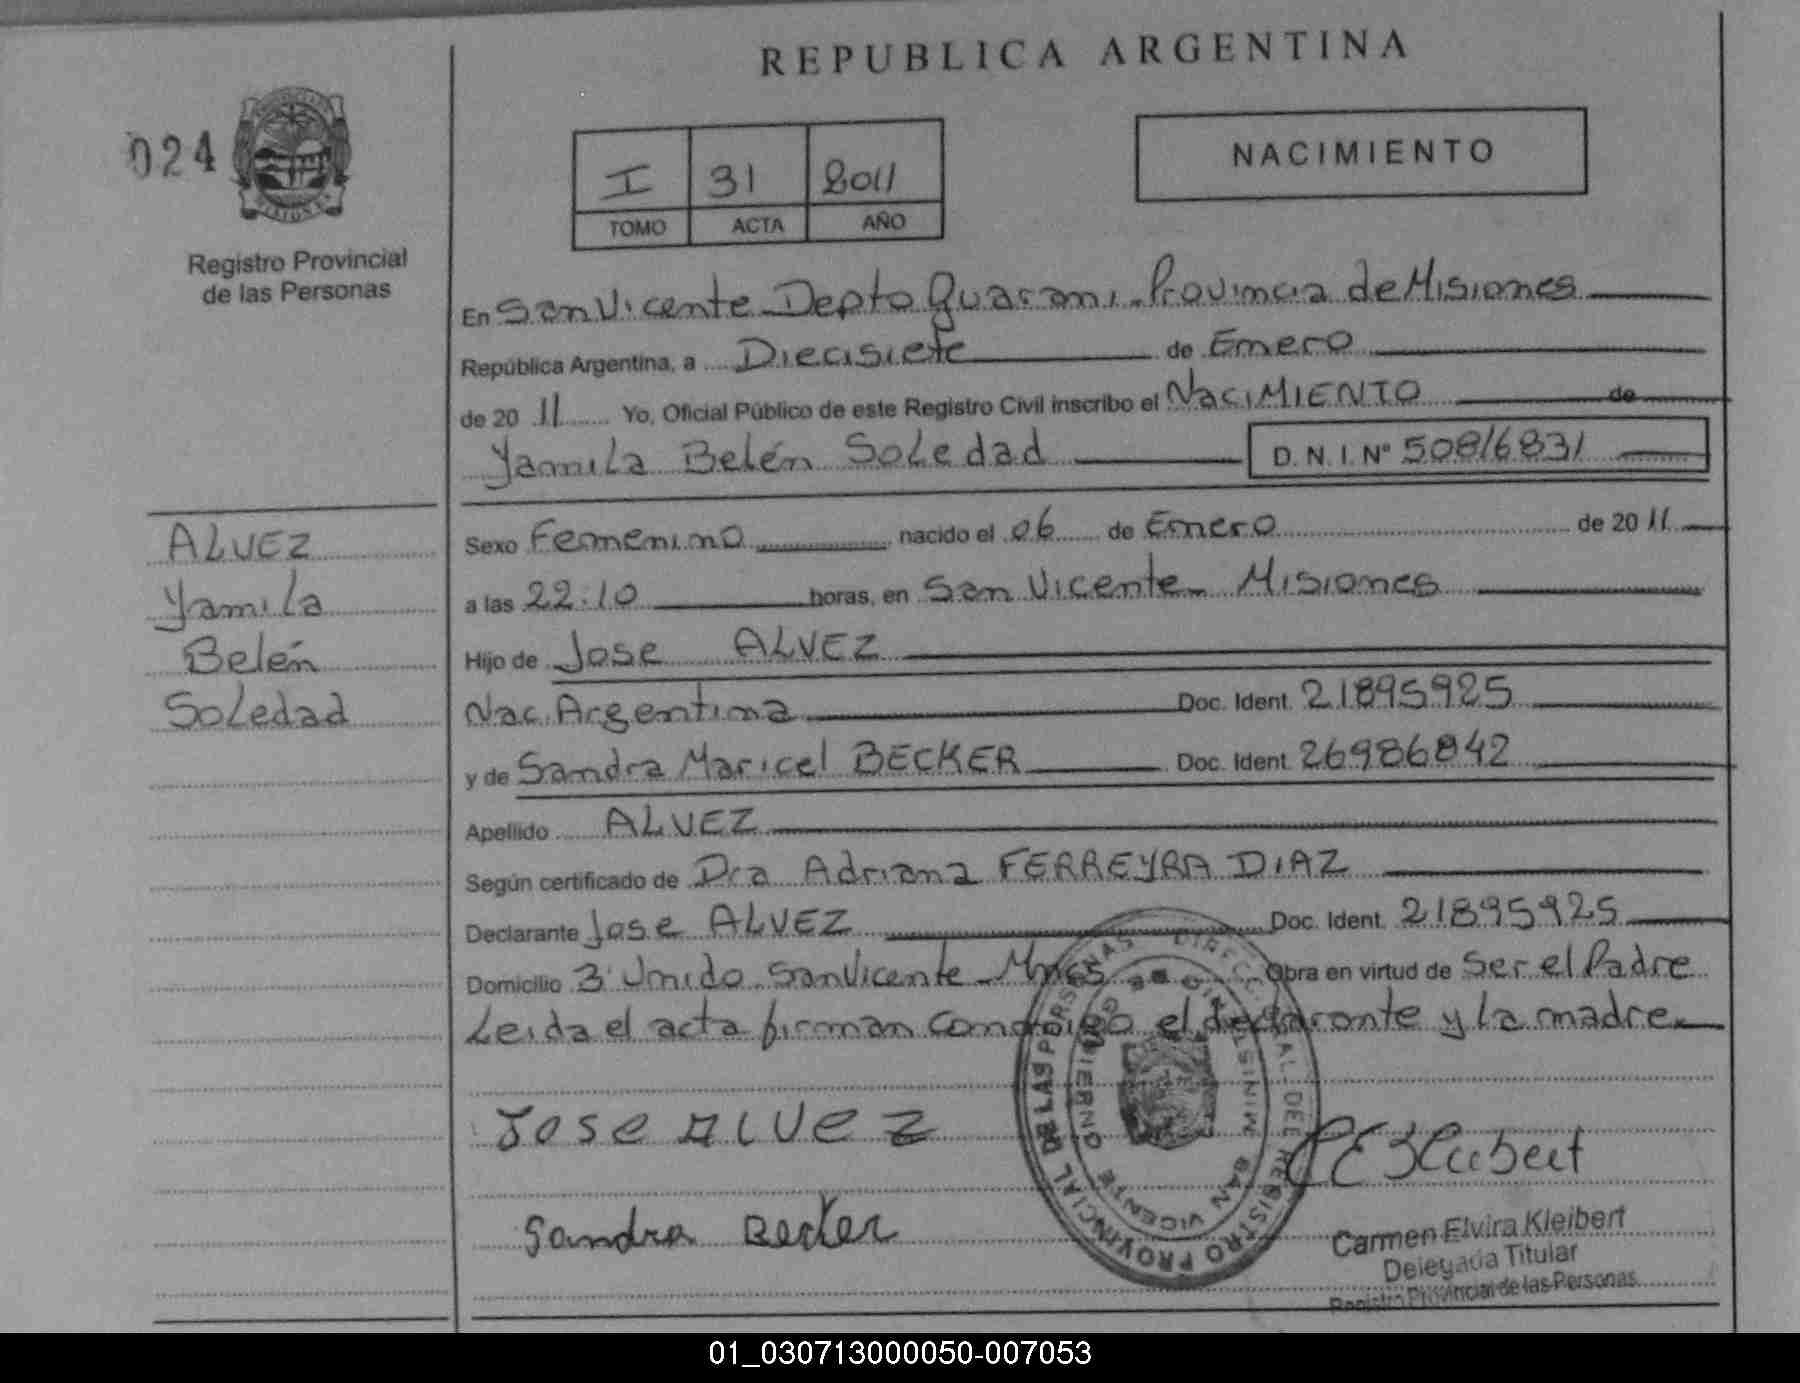 REPUBLICA ARGENTINA
024
Registro Provincial
de las Personas
I 31 2011
TOMO ACTA AÑO
NACIMIENTO
En San Vicente Depto Guarani. Provincia de Misiones
República Argentina, a Diecisiete de Enero
de 20 11 Yo, Oficial Público de este Registro Civil inscribo el NACIMIENTO de
Yamila Belén Soledad D.N.I.Nº 50816831
ALVEZ
Yamila
Belén
Soledad
Sexo Femenino nacido el 06 de Enero de 20 11
a las 22:10 horas, en San Vicente - Misiones
Hijo de Jose ALVEZ
Nac. Argentina Doc. Ident. 21895925
y de Sandra Maricel BECKER Doc. Ident. 26986842
Apellido ALVEZ
Según certificado de Dra Adriana FERREYRA DIAZ
Declarante Jose ALVEZ Doc. Ident. 21895925
Domicilio 3 Unido San Vicente - Mnes Obra en virtud de Ser el Padre
Leida el acta firman conmigo el declarante y la madre
Jose ALVEZ
Sandra Becker
DIRECC. GRAL. DEL REGISTRO PROVINCIAL DE LAS PERSONAS
MINISTERIO DE GOBIERNO
SAN VICENTE
CEKleibert
Carmen Elvira Kleibert
Delegada Titular
Registro Provincial de las Personas
01_030713000050-007053